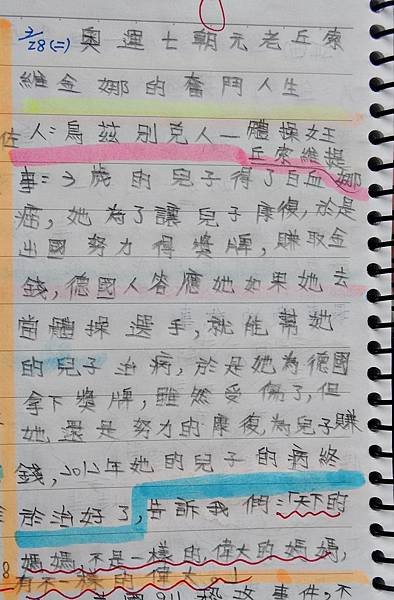 2/28(二) 奧運七朝元老丘索
維金娜的奮鬥人生
人:烏茲別克人—體操女王
丘索維提娜
事:3歲的兒子得了白血
癌,她為了讓兒子康復,於是
出國努力得獎牌,賺取金
錢,德國人答應她如果她去
當體操選手,就能幫她
的兒子治病,於是她為德國
拿下獎牌,雖然受傷了,但
她還是努力的康復,為兒子賺
錢,2012年她的兒子的病終
於治好了,告訴我們:「天下的
媽媽不是一樣的,偉大的媽媽,
有不一樣的偉大。」